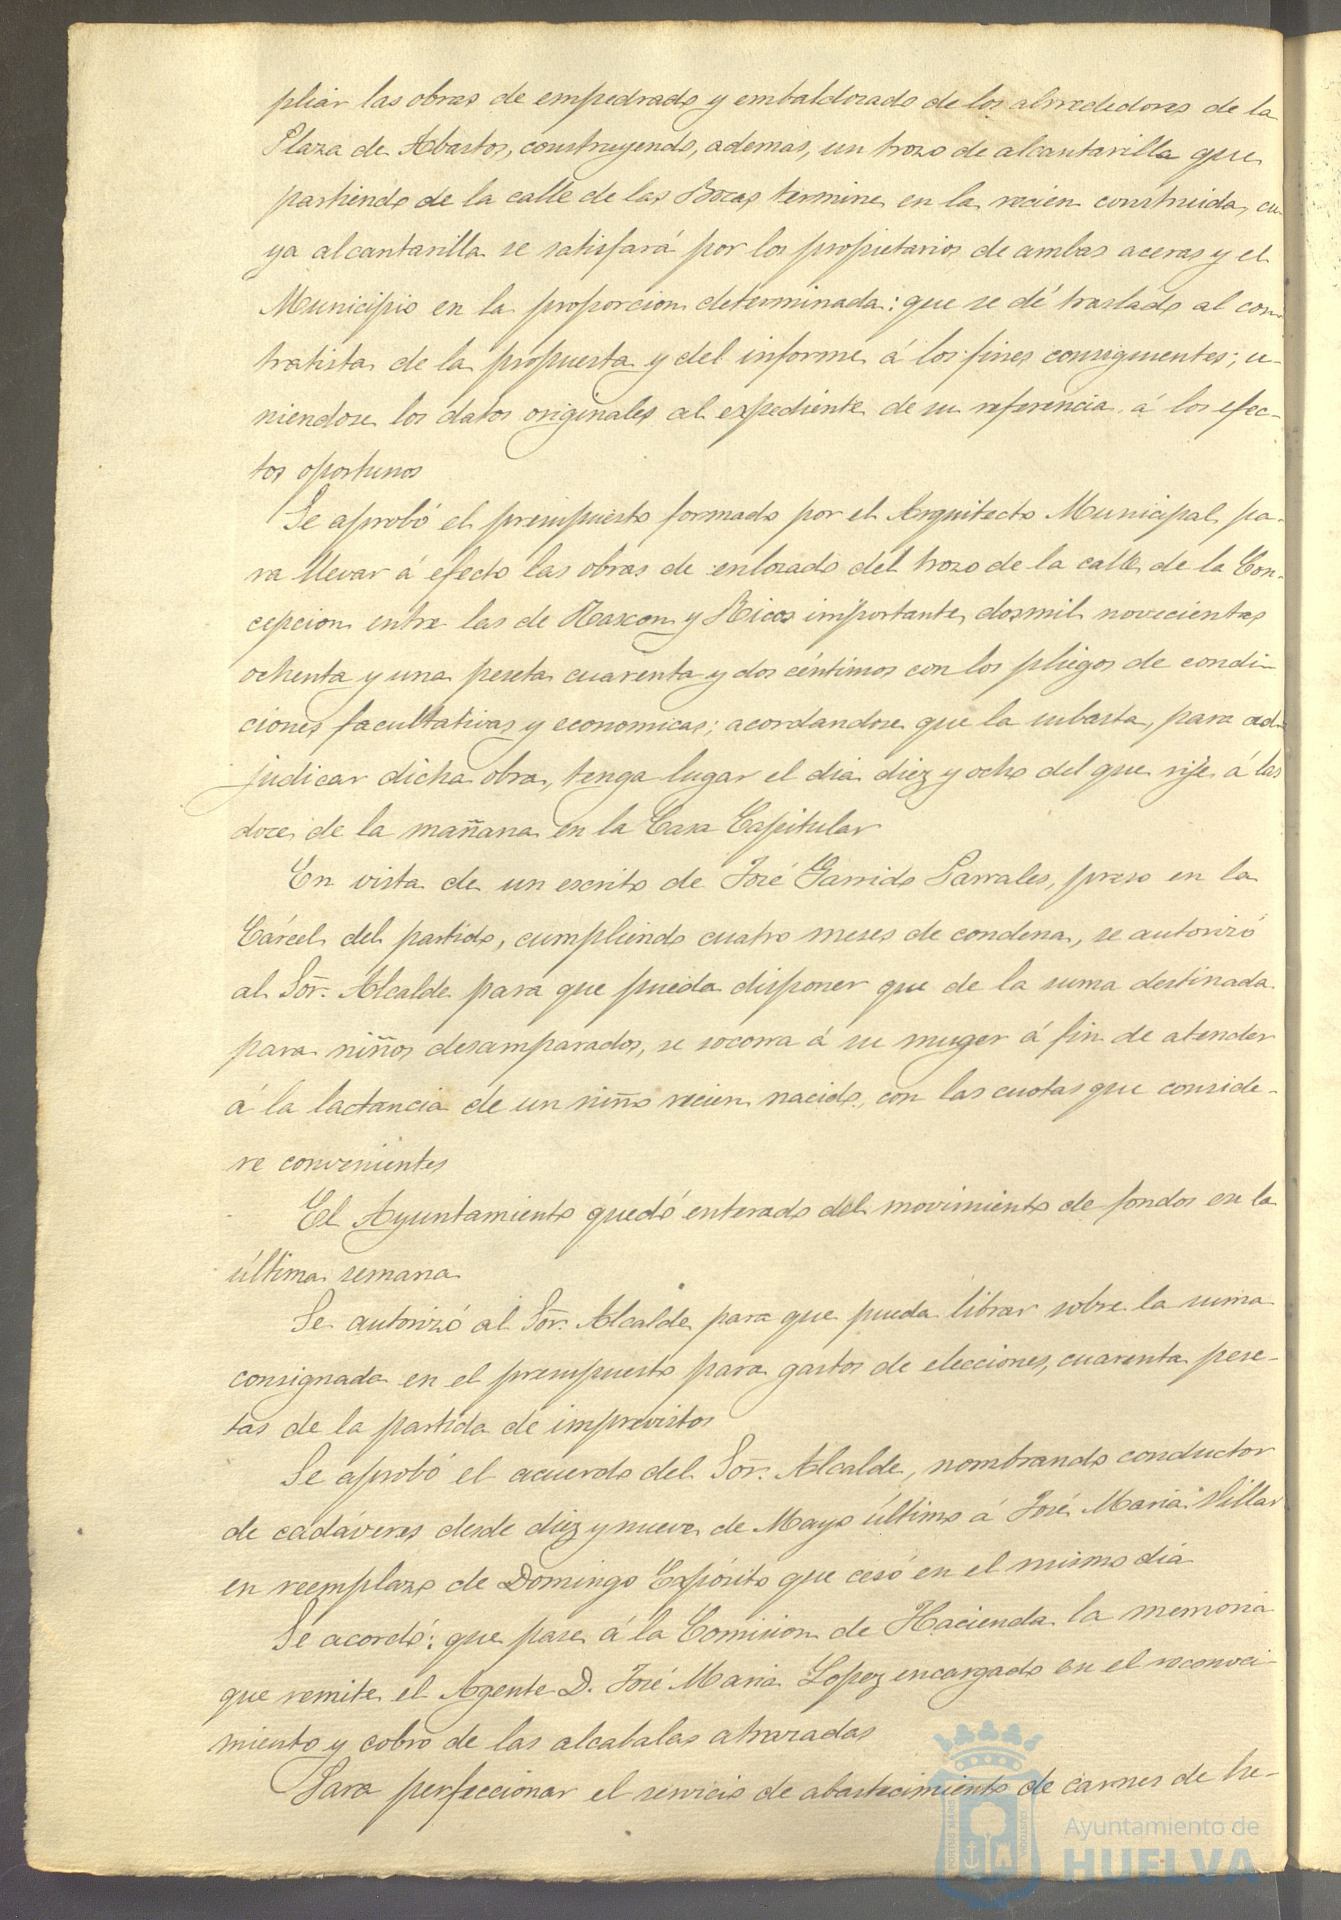 pliar las obras de empedrado y embaldosado de los alrrededores de la
Plaza de Abastos, construyendo, ademas, un trozo de alcantarilla que
partiendo de la calle de las Bocas termine en la recien construida, cu-
ya alcantarilla se satisfará por los propietarios de ambas aceras y el
Municipio en la proporcion determinada: que se dé traslado al con-
tratista de la propuesta y del informe á los fines consiguientes; u-
niendose los datos originales al expediente de su referencia á los efec-
tos oportunos
Se aprobó el presupuesto formado por el Arquitecto Municipal pa-
ra llevar á efecto las obras de enlosado del trozo de la calle de la Con-
cepcion entre las de Rascon y Ricos importante, dosmil novecientas
ochenta y una peseta cuarenta y dos céntimos con los pliegos de condi-
ciones facultativas y economicas; acordandose que la subasta, para ad-
judicar dicha obra, tenga lugar el dia diez y ocho del que rije á las
doce de la mañana en la Casa Capitular
En vista de un escrito de José Garrido Parrales, preso en la
Cárcel del partido, cumpliendo cuatro meses de condena, se autorizó
al Sor. Alcalde para que pueda disponer que de la suma destinada
para niños desamparados, se socorra á su muger á fin de atender
á la lactancia de un niño recien nacido, con las cuotas que conside-
re convenientes
El Ayuntamiento quedó enterado del movimiento de fondos en la
última semana
Se autorizó al Sor. Alcalde para que pueda librar sobre la suma
consignada en el presupuesto para gastos de elecciones, cuarenta pese-
tas de la partida de imprevistos
Se aprobó el acuerdo del Sor. Alcalde, nombrando conductor
de cadáveres desde diez y nueve de Mayo último á José Maria Villar
en reemplazo de Domingo Expósito que cesó en el mismo dia
Se acordó: que pase á la Comision de Hacienda la memoria
que remite el Agente D. José Maria Lopez encargado en el reconoci-
miento y cobro de las alcabalas atrazadas
Para perfeccionar el servicio de abastecimiento de carnes de he-
Ayuntamiento de
HUELVA